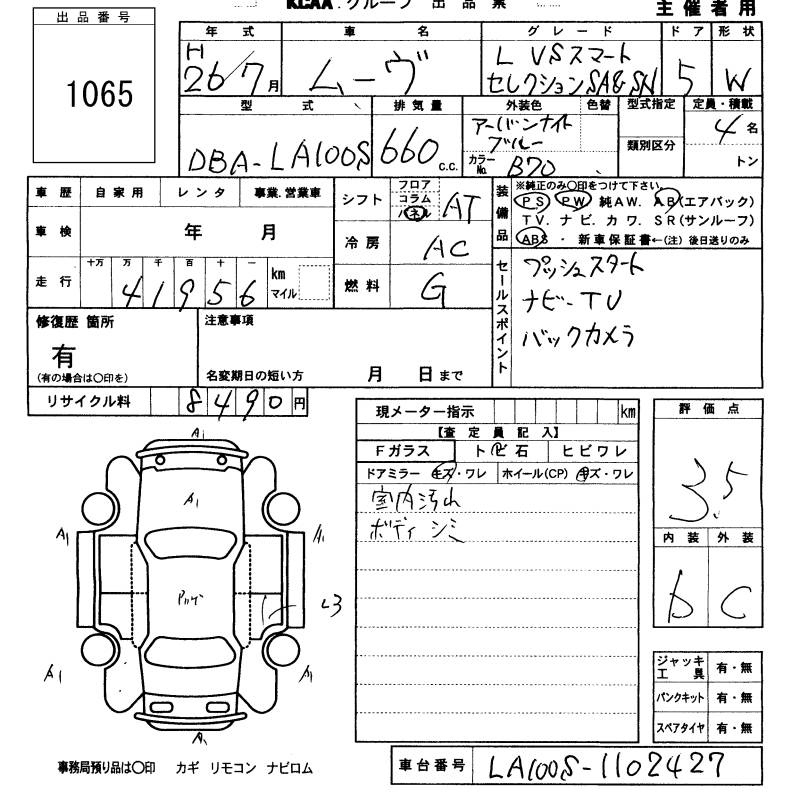 KCAA グループ 出品票
主催者用
出品番号
1065
年式 車名 グレード ドア 形状
H 26/7月 ムーヴ L VSスマート 5 W
セレクションSA&SN
型式 排気量 外装色 色替 型式指定 定員・積載
DBA-LA100S 660 c.c. アーバンナイト 4名
ブルー 類別区分
カラーNo. B70 トン
車歴 自家用 レンタ 事業.営業車
シフト フロア コラム パネル AT
装備品 ※純正のみ○印をつけて下さい。
PS PW 純AW. AB(エアバック)
TV. ナビ. カワ. SR(サンルーフ)
ABS・新車保証書←(注)後日送りのみ
車検 年 月
冷房 AC
走行 十万 万 千 百 十 一
41956 km マイル
燃料 G
セールスポイント プッシュスタート
ナビ-TV
バックカメラ
修復歴 箇所
有
(有の場合は○印を)
注意事項
名変期日の短い方 月 日まで
リサイクル料 8490円
現メーター指示 km
【査定員記入】
Fガラス トビ石 ヒビワレ
ドアミラー キズ・ワレ ホイール(CP) キズ・ワレ
室内汚れ
ボディシミ
評価点
3.5
内装 外装
b C
A1
A1
A1 A1
L3
A1 A1
A1
ジャッキ 工具 有・無
パンクキット 有・無
スペアタイヤ 有・無
事務局預り品は○印 カギ リモコン ナビロム
車台番号 LA100S-1102427